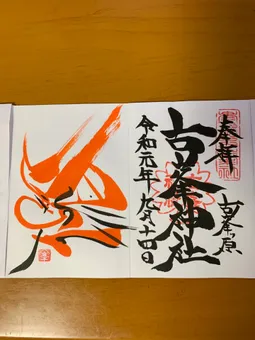 奉拝
古峯原
古峯神社
令和元年九月十四日